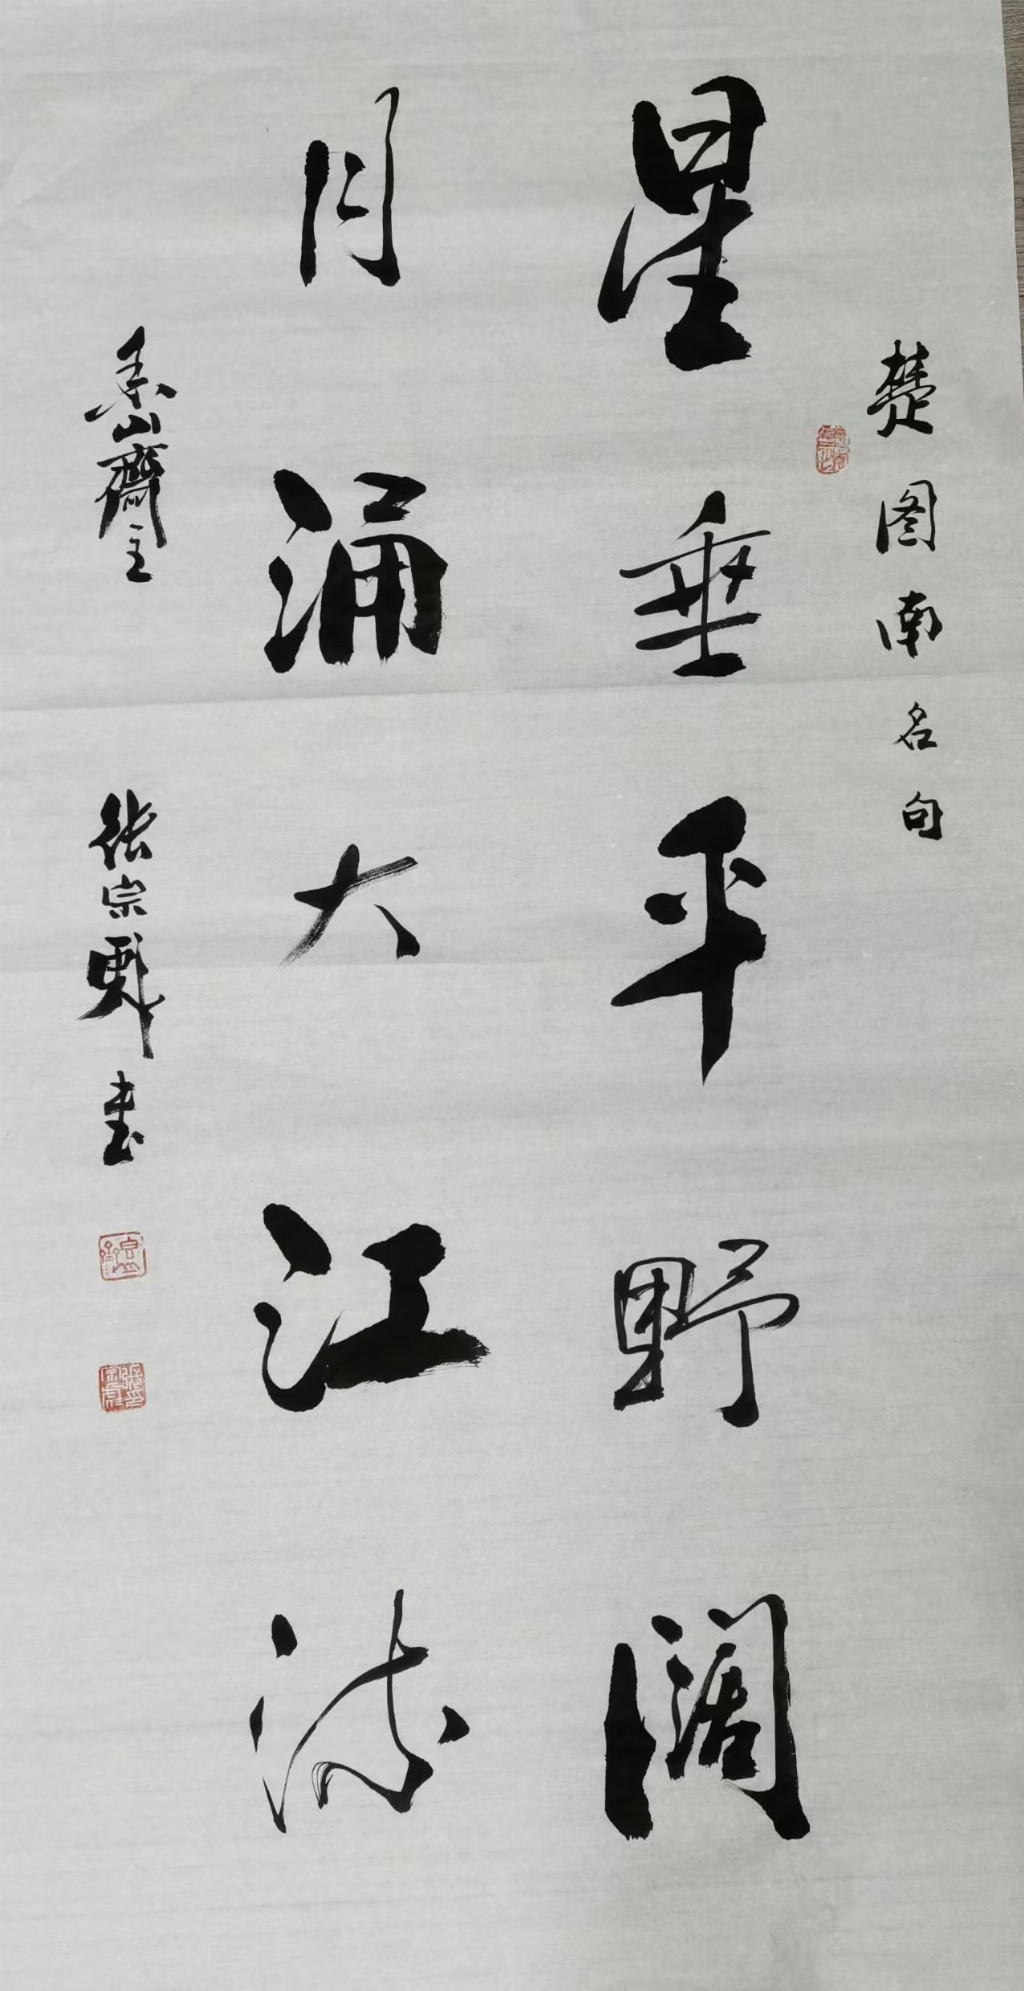 楚图南名句
星垂平野阔
月涌大江流
山齋主
张宗彪书